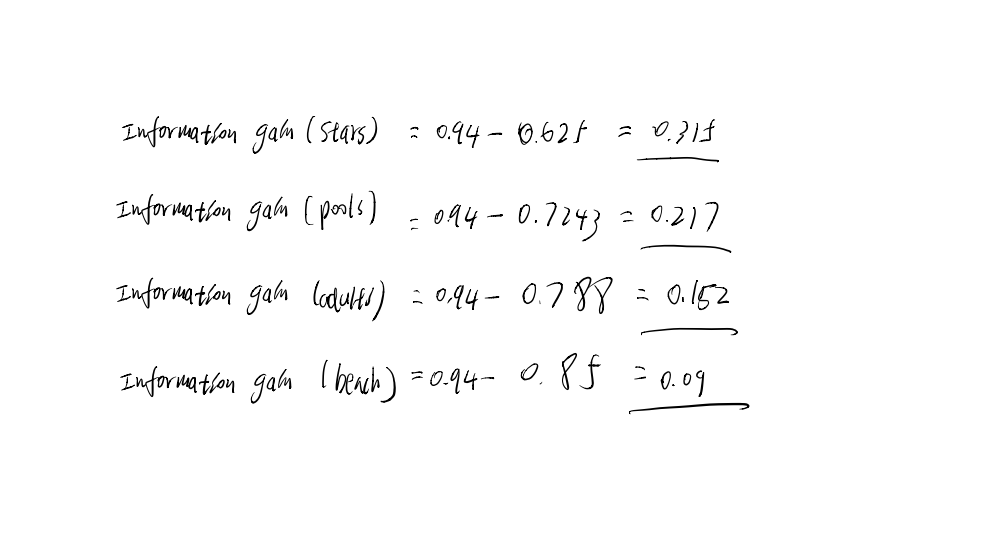 Information gain (stars) = 0.94 - 0.625 = 0.315
Information gain (pools) = 0.94 - 0.7243 = 0.217
Information gain (adults) = 0.94 - 0.788 = 0.152
Information gain (beach) = 0.94 - 0.85 = 0.09